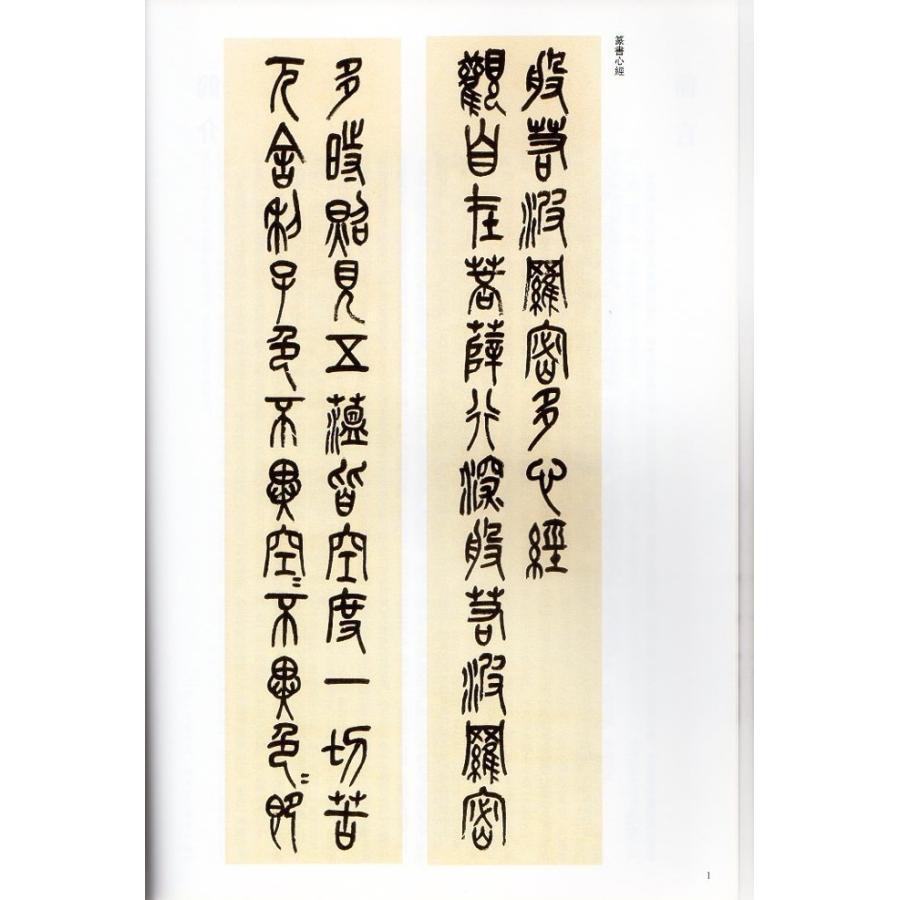 篆書心經
般若波羅密多心經
觀自在菩薩行深般若波羅密
多時照見五蘊皆空度一切苦
厄舍利子色不異空〻不異色〻即
1